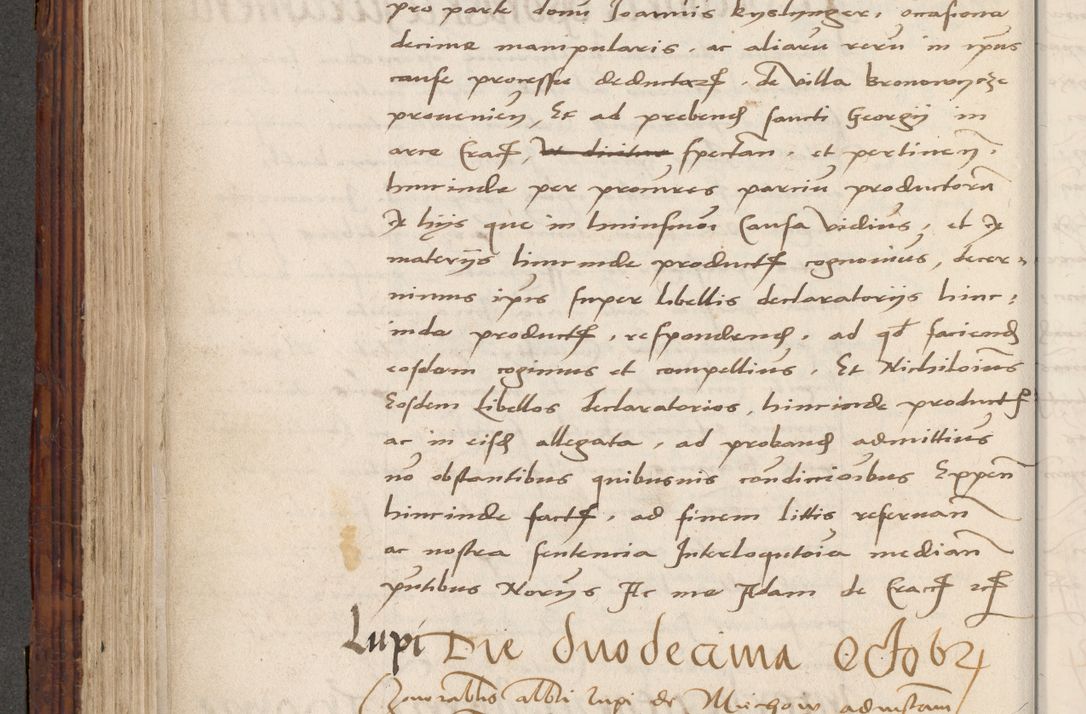 pro parte domi Joannis kyslynger, occasione
decime manipularis, ac aliaru reru in ipius
cause processu deductaꝝ, de villa Bronowycze
provenien, Et ad prebend sancti Georgij in
arce Crac, ut dicitur spectan, et pertinen,
hincinde per procures parciu productoru
Ex hijs que in hmoi causa vidius, et ex
materijs hincinde product cognovius, decer-
nimus ipis super libellis declaratorijs hinc-
inde product, respondend, ad qd faciend
eosdem cogimus et compellius, Et Nichiloius
Eosdem Libellos declaratorios, hincinde product
ac in eisd allegata, ad proband admittius
no obstantibus quibusuis condicioibus Exppen
hincinde fact, ad finem littis reseruan
ac nostra sentencia Interloqutoia median
pntibus Norijs Ac me Adam de Crac
Lupi Die duodecima Octobꝝ
Honorabilis albti lupi de Miechow